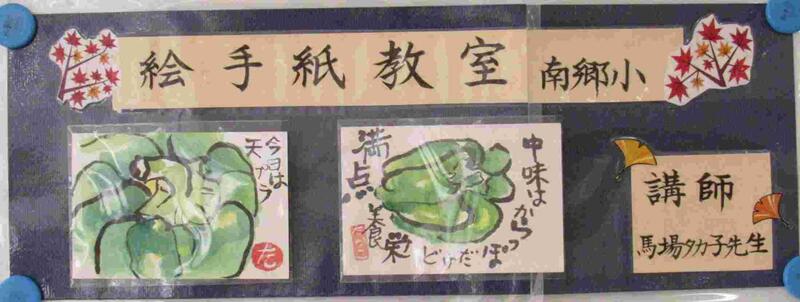 絵手紙教室 南郷小
今日は
天プラ
た
中味はからっ
ぽだけど
栄養
満点
講師
馬場タカ子先生